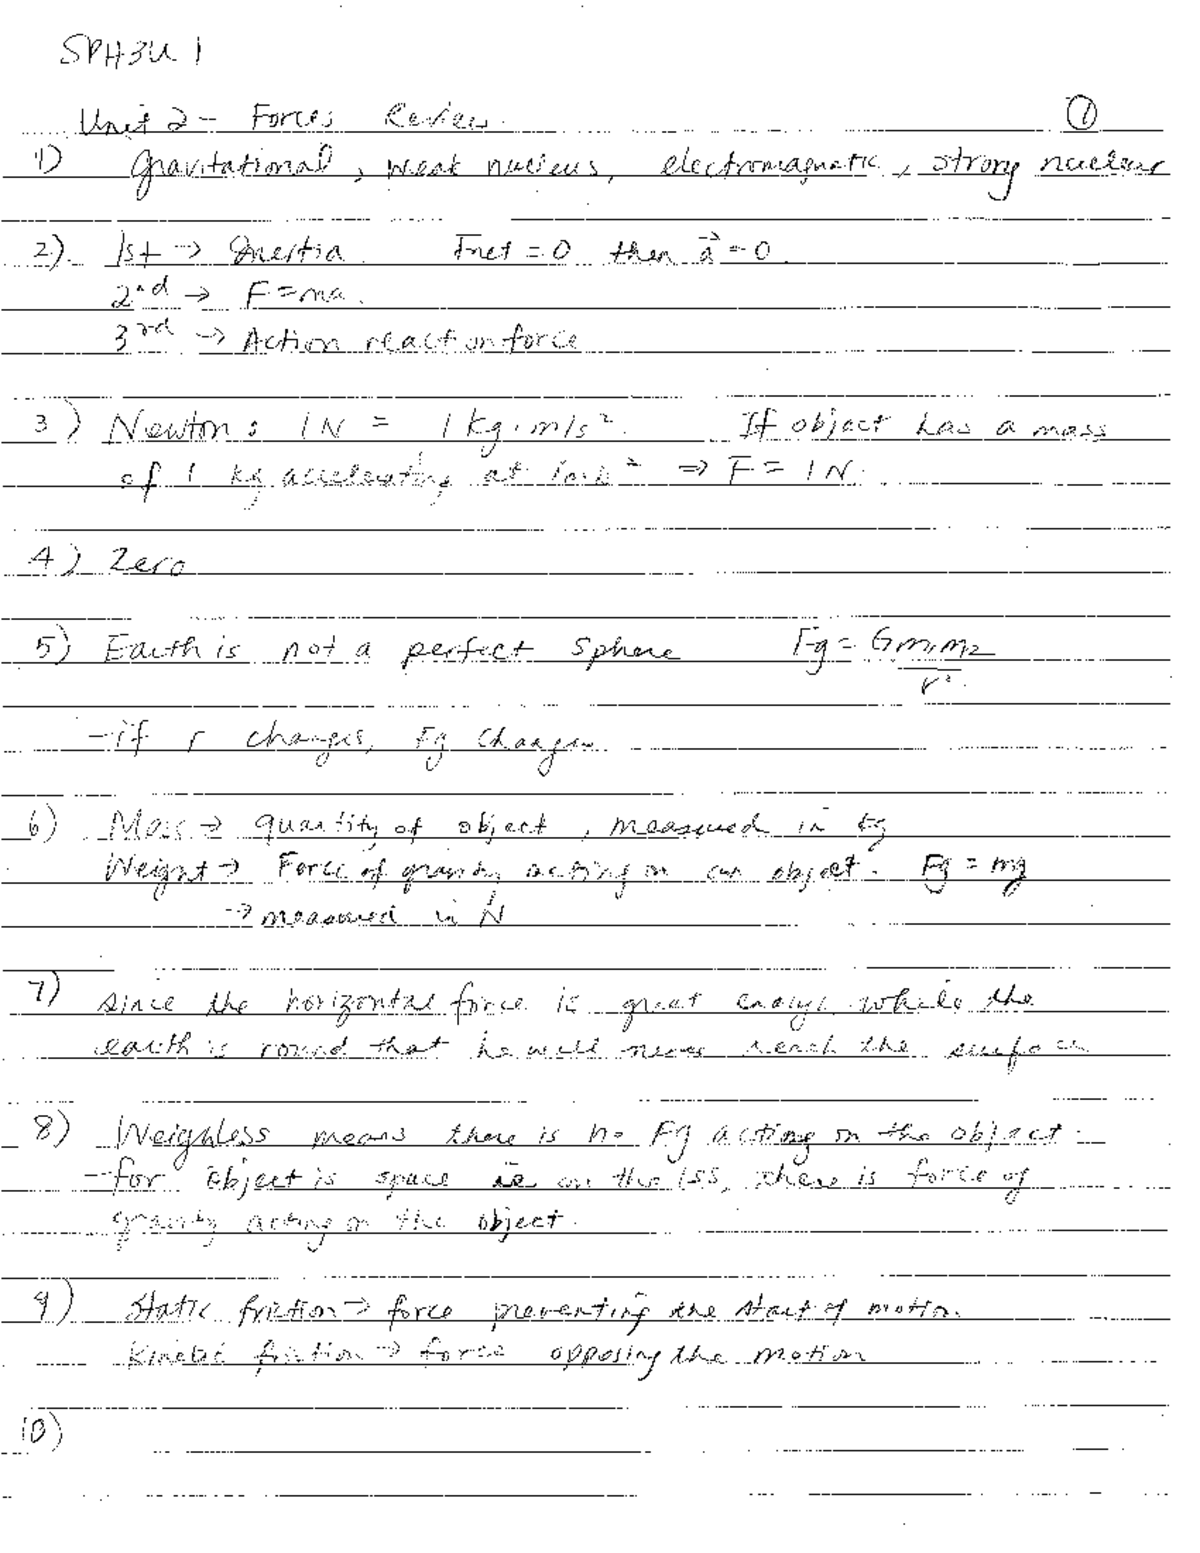 SPH3U 1
Unit 2 - Forces Review. ①
1) Gravitational, weak nucleus, electromagnetic, strong nuclear
2). 1st → Inertia. Fnet = 0 then a⃗ = 0.
2nd → F = ma.
3rd → Action reaction force
3) Newton: 1N = 1 kg·m/s². If object has a mass
of 1 kg accelerating at 1m/s² ⇒ F = 1N.
4) Zero
5) Earth is not a perfect sphere Fg = Gm₁m₂
r².
- if r changes, Fg changes.
6) Mass → quantity of object, measured in kg
Weight → Force of gravity acting on an object. Fg = mg
→ measured in N
7) since the horizontal force is great enough while the
earth is round that he will never reach the surface
8) Weighless means there is no Fg acting on the object.
- for object is space is on the ISS, there is force of
gravity acting on the object.
9) Static friction → force preventing the start of motion.
Kinetic friction → force opposing the motion
10)